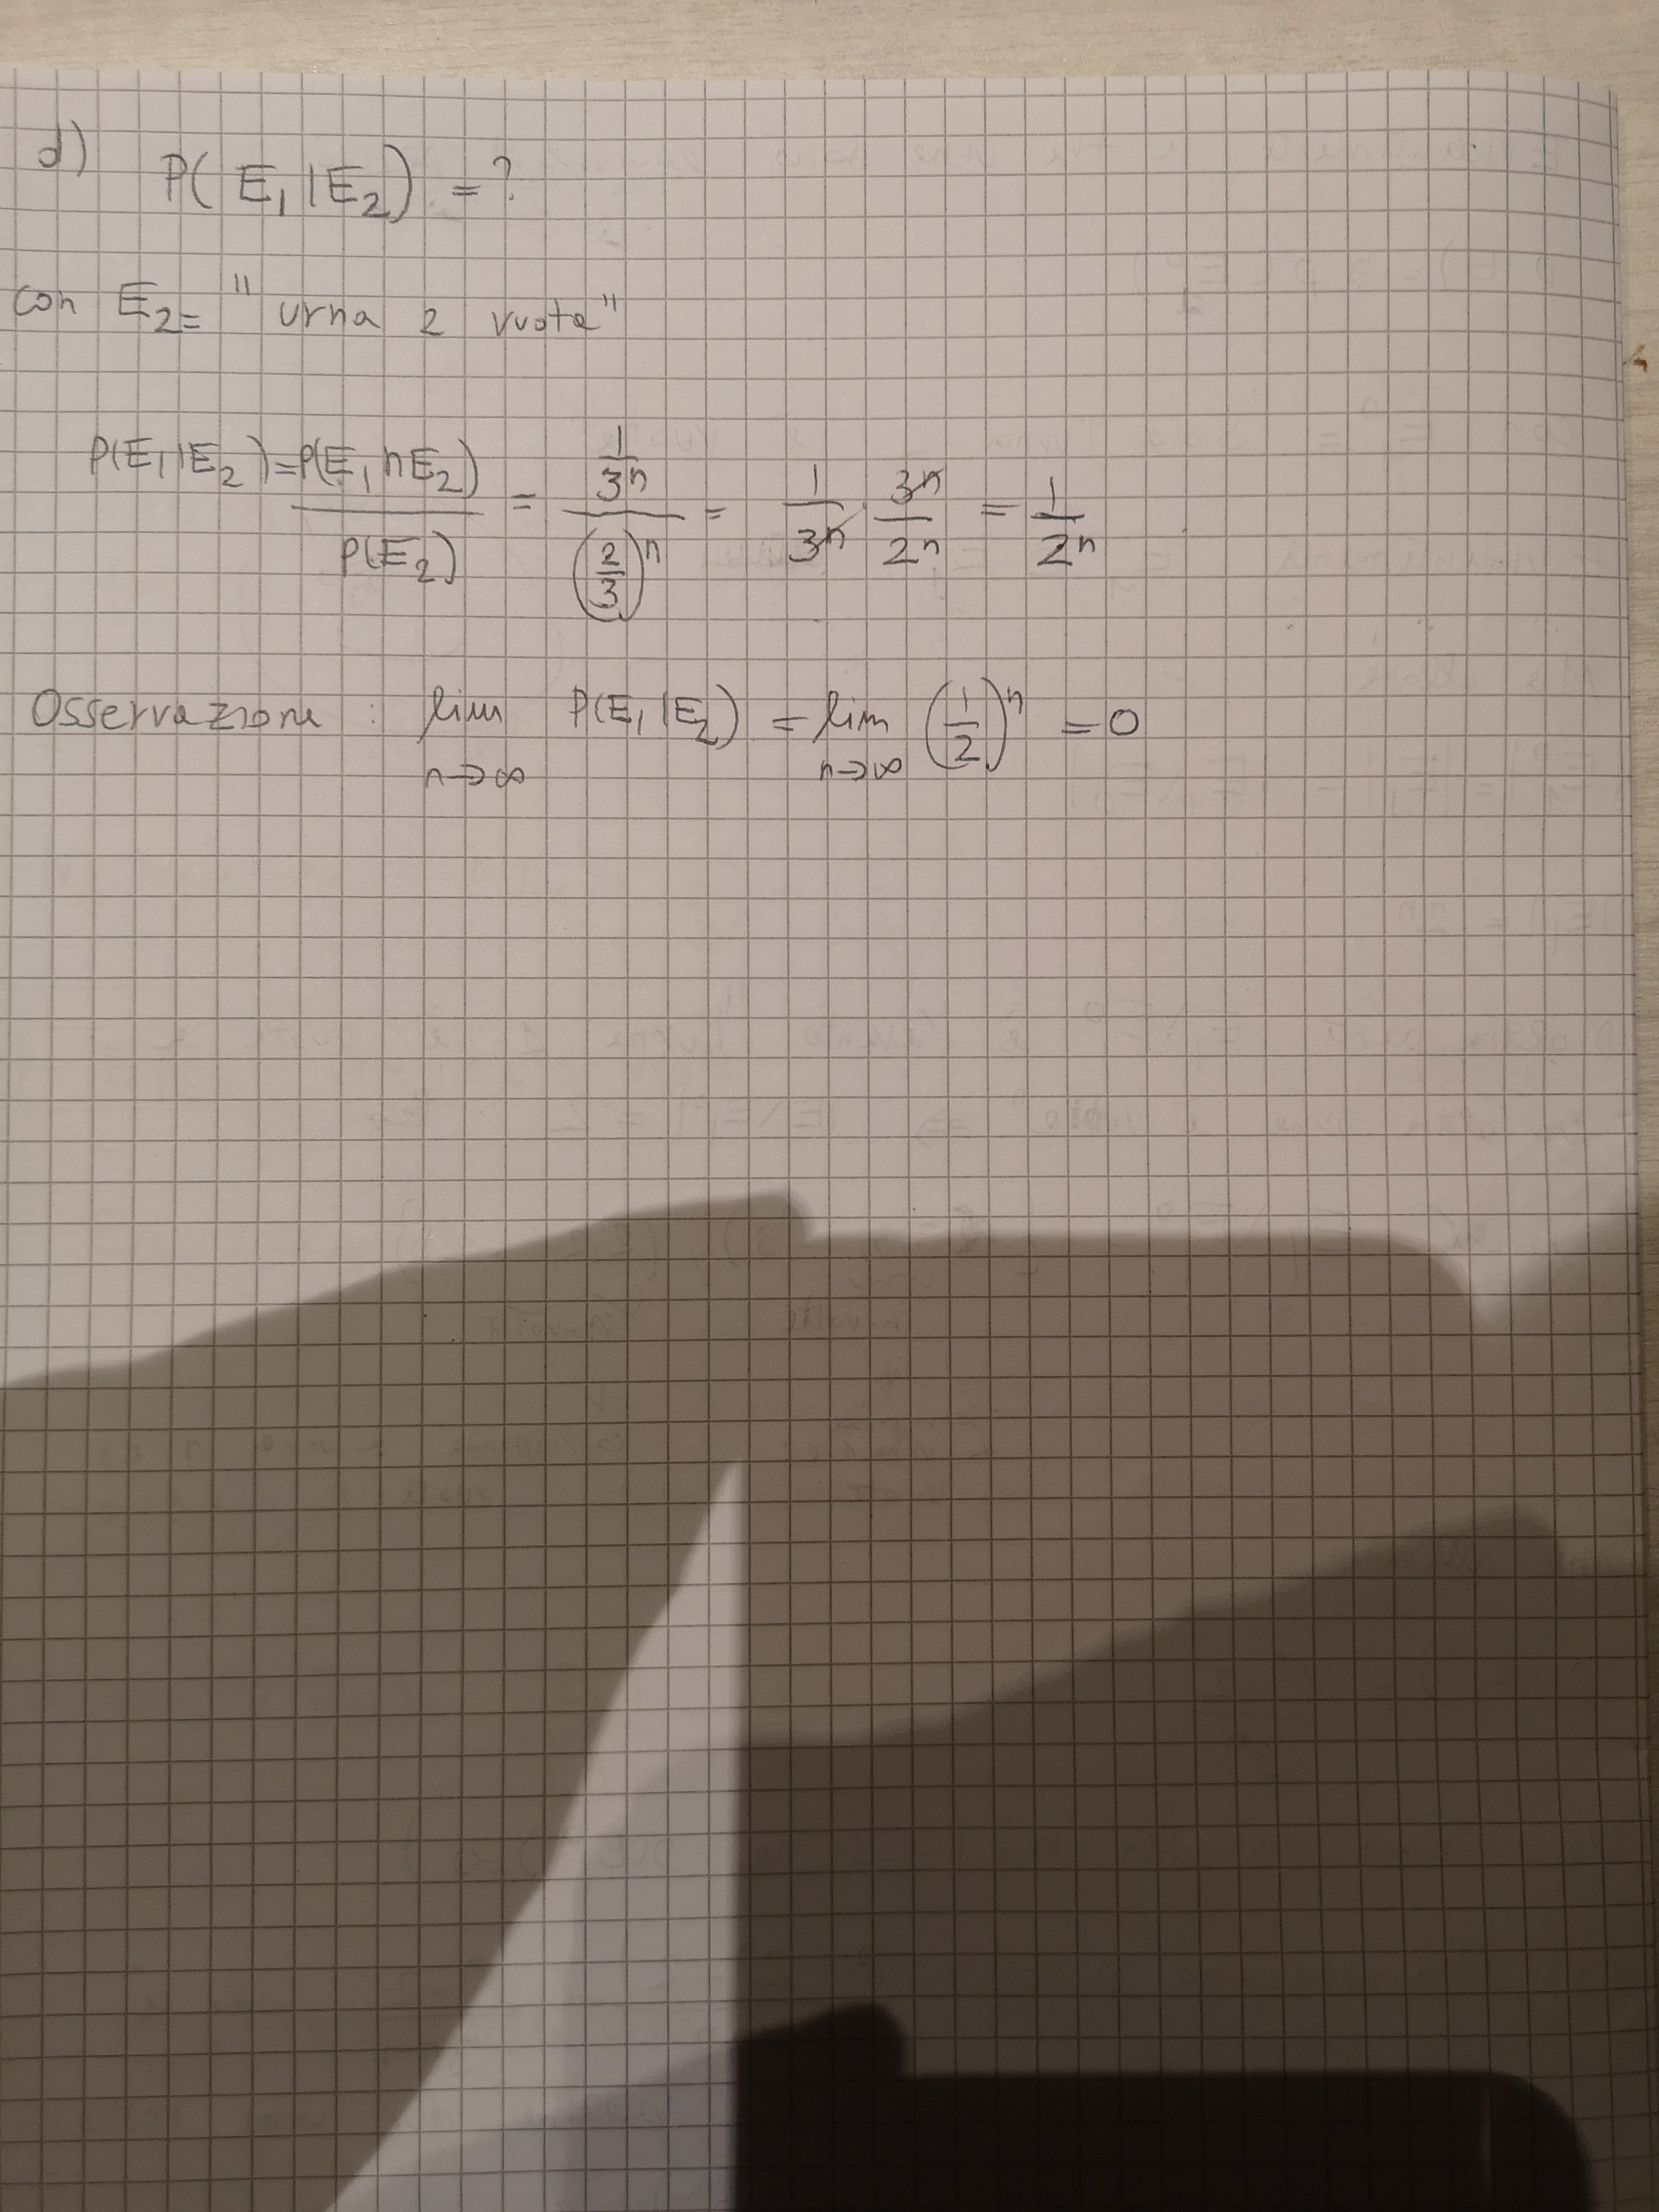 d) P(E₁|E₂) = ?
con E₂ = "urna 2 vuota"
P(E₁|E₂) = P(E₁∩E₂) / P(E₂) = (1/3ⁿ) / (2/3)ⁿ = 1/3ⁿ · 3ⁿ/2ⁿ = 1/2ⁿ
Osservazione : lim n→∞ P(E₁|E₂) = lim n→∞ (1/2)ⁿ = 0